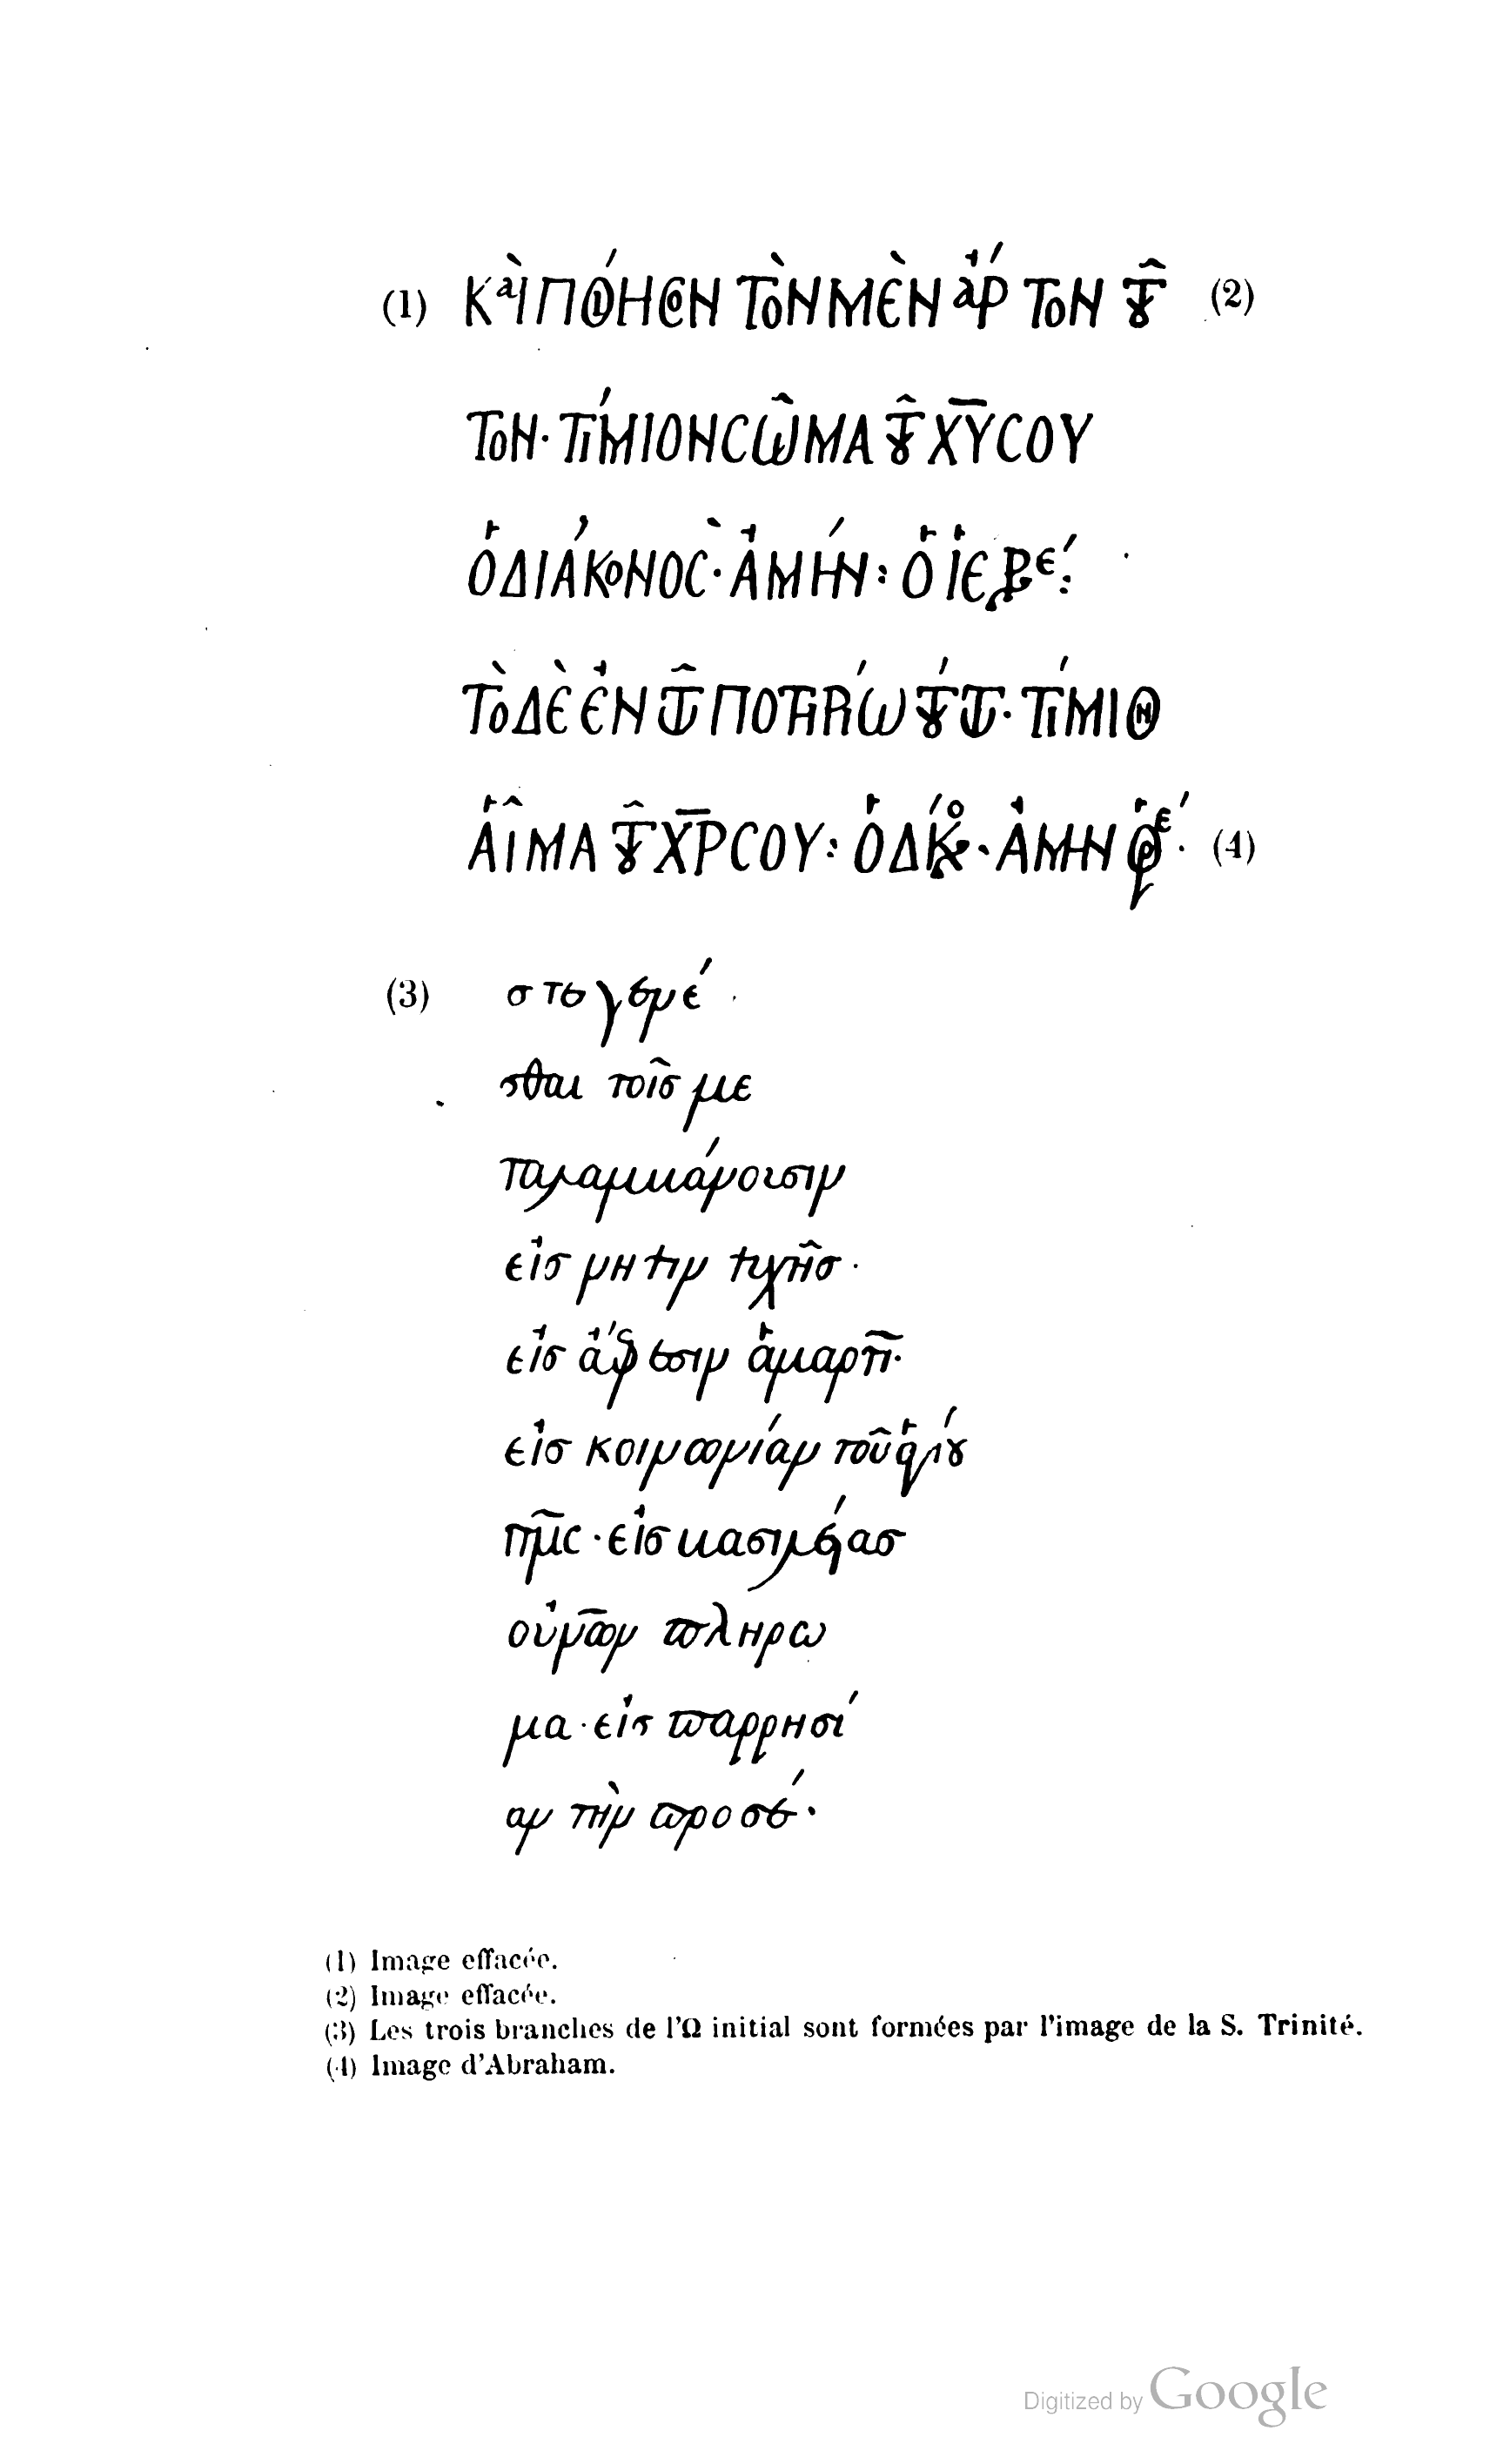 (1) ΚΑῚ ΠΟΊΗϹΟΝ ΤῸΝ ΜῈΝ ἌΡΤΟΝ ΤΟῦ (2)
ΤΟΝ· ΤΊΜΙΟΝ ϹῶΜΑ ΤΟῦ Χ̅Υ̅ ϹΟΥ
ὉΔΙΆΚΟΝΟϹ· ἈΜΉΝ: Ὁ ἹΕΡΕΎ:
ΤῸ ΔῈ ἘΝ Τῶ ΠΟΤΗΡΊω ΤΟΎΤω· ΤΊΜΙΟΝ
ΑἿΜΑ ΤΟῦ Χ̅Ρ̅ ϹΟΥ: Ὁ ΔΚ· ἈΜΗΝ (4)
(3) στε γενέ
σθαι τοῖσ με
ταλαμβάνουσιν
εἰσ νηψιν ψυχῆσ·
εἰσ ἄφεσιν ἁμαρτι·
εἰσ κοινωνίαν τοῦ ἁγίου
πν̅σ· εἰσ βασιλείασ
οὐνων πληρω
μα· εἰσ παρρησί
αν τὴν προσέ·
(1) Image effacée.
(2) Image effacée.
(3) Les trois branches de l'Ω initial sont formées par l'image de la S. Trinité.
(4) Image d'Abraham.
Digitized by Google